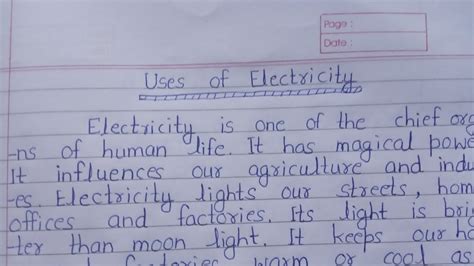 Page:
Date:
Uses of Electricity
Electricity is one of the chief org
-ns of human life. It has magical powe
It influences our agriculture and indu
-es. Electricity lights our streets, hom
offices and factories. Its light is brig
-ter than moon light. It keeps our ho
warm or cool as